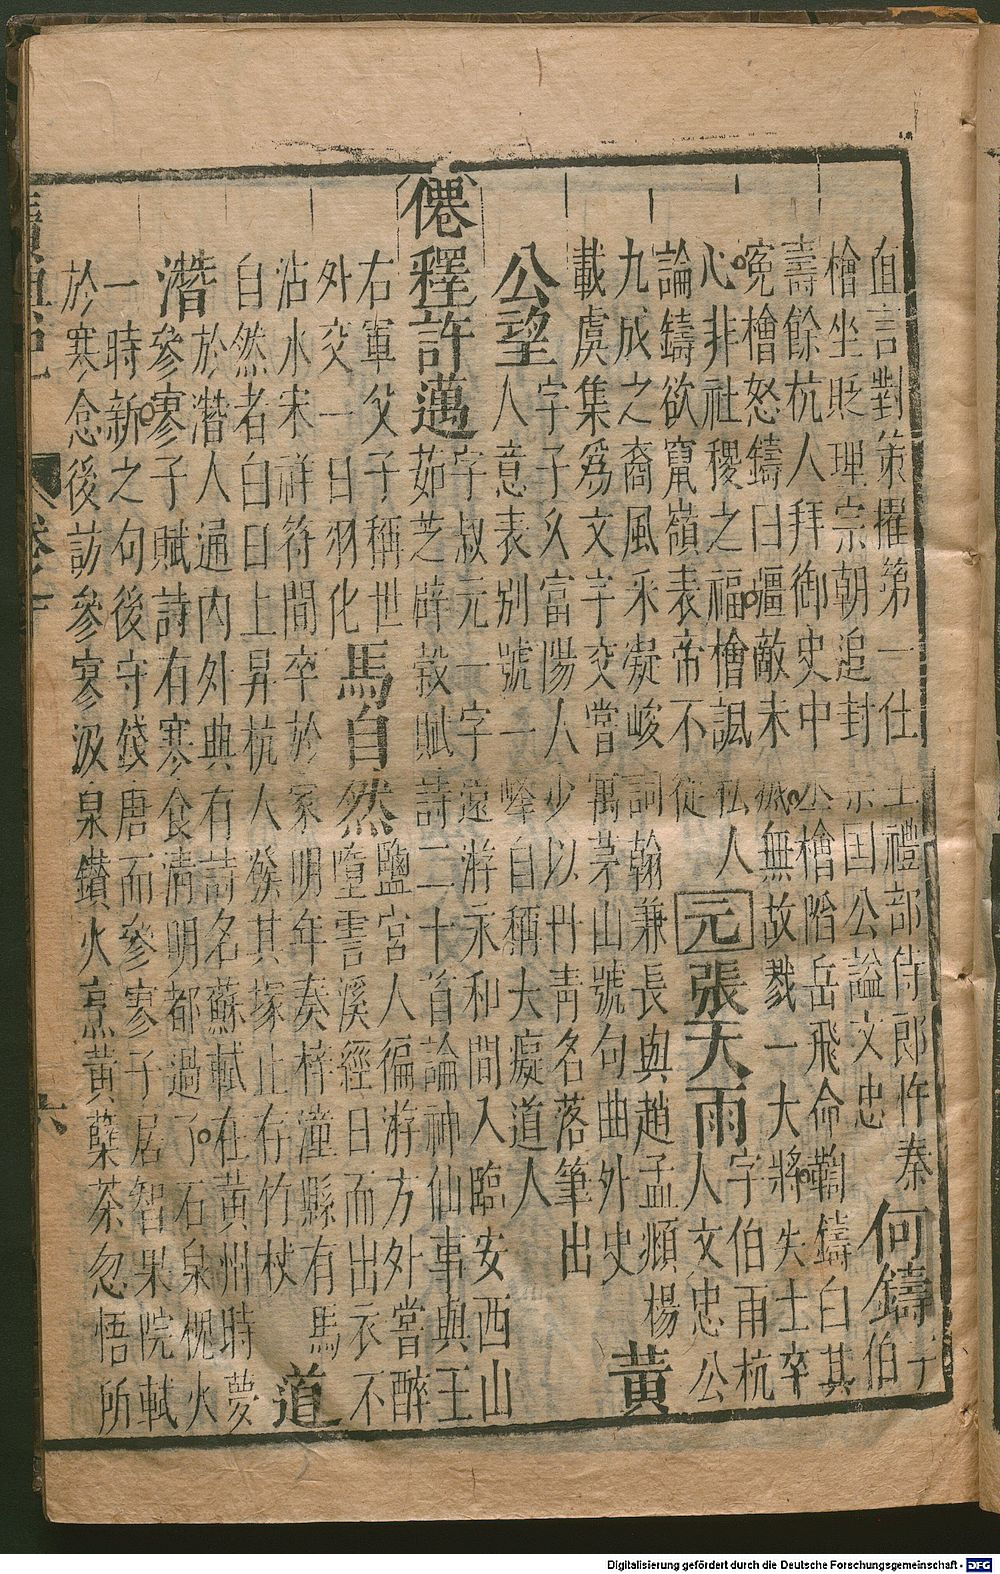 直言對策擢第一仕至禮部侍郎忤秦
檜坐貶理宗朝追封崇國公謚文忠
何鑄
字
伯
壽餘杭人拜御史中丞檜陷岳飛命鞫鑄白其
寃檜怒鑄曰疆敵未滅無故戮一大將失士卒
心非社稷之福檜諷私人
論鑄欲竄嶺表帝不從
元
張天雨
字伯雨杭
人文忠公
九成之裔風采凝峻詞翰兼長與趙孟頫楊
載虞集爲文字交嘗寓茅山號句曲外史
黄
公望
字子久富陽人少以丹青名落筆出
人意表別號一峰自稱大癡道人
僊釋
許邁
字叔元一字遠游永和間入臨安西山
茹芝辟穀賦詩二十首論神仙事與王
右軍父子稱世
外交一日羽化
馬自然
鹽官人徧游方外嘗醉
墮霅溪經日而出衣不
沾水宋祥符間卒於家明年奏梓潼縣有馬
自然者白日上昇杭人發其塚止存竹杖
道
潛
於潛人通內外典有詩名蘇軾在黃州時夢
參寥子賦詩有寒食清明都過了石泉槐火
一時新之句後守錢唐而參寥子居智果院軾
於寒念後訪參寥汲泉鑽火烹黃蘗茶忽悟所
六
Digitalisierung gefördert durch die Deutsche Forschungsgemeinschaft - DFG